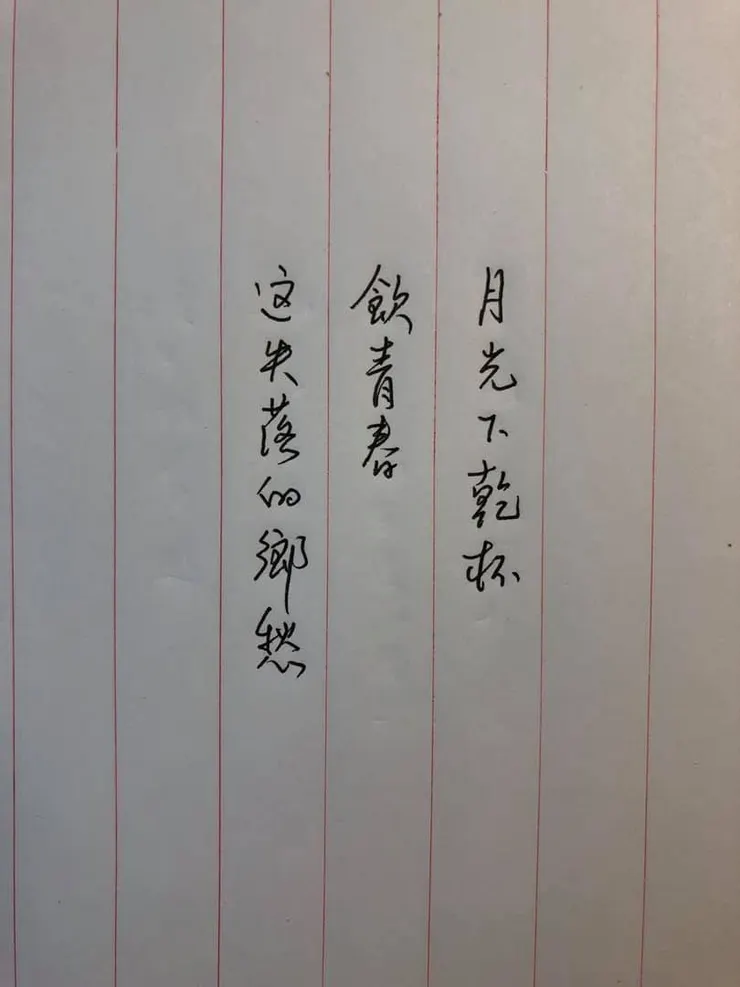 月光下乾杯
飲青春
这失落的鄉愁